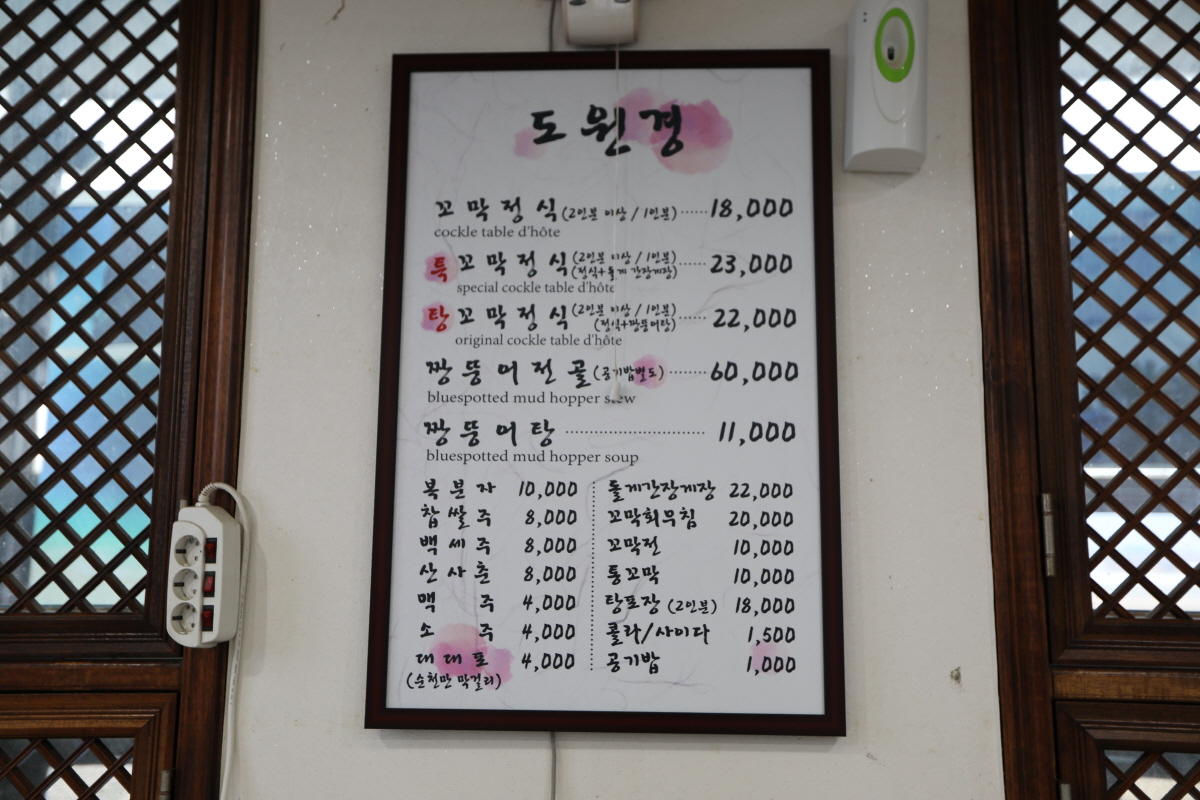 도원경
꼬막정식(2인분 이상 / 1인분) 18,000
cockle table d'hôte
특꼬막정식(2인분 이상 / 1인분) 23,000
(정식+돌게 간장게장)
special cockle table d'hôte
탕꼬막정식(2인분 이상 / 1인분) 22,000
(정식+짱뚱어탕)
original cockle table d'hôte
짱뚱어전골(공기밥별도) 60,000
bluespotted mud hopper stew
짱뚱어탕 11,000
bluespotted mud hopper soup
복분자 10,000
찹쌀주 8,000
백세주 8,000
산사춘 8,000
맥주 4,000
소주 4,000
대대포 4,000
(순천만 막걸리)
돌게간장게장 22,000
꼬막회무침 20,000
꼬막전 10,000
통꼬막 10,000
탕포장 (2인분) 18,000
콜라/사이다 1,500
공기밥 1,000